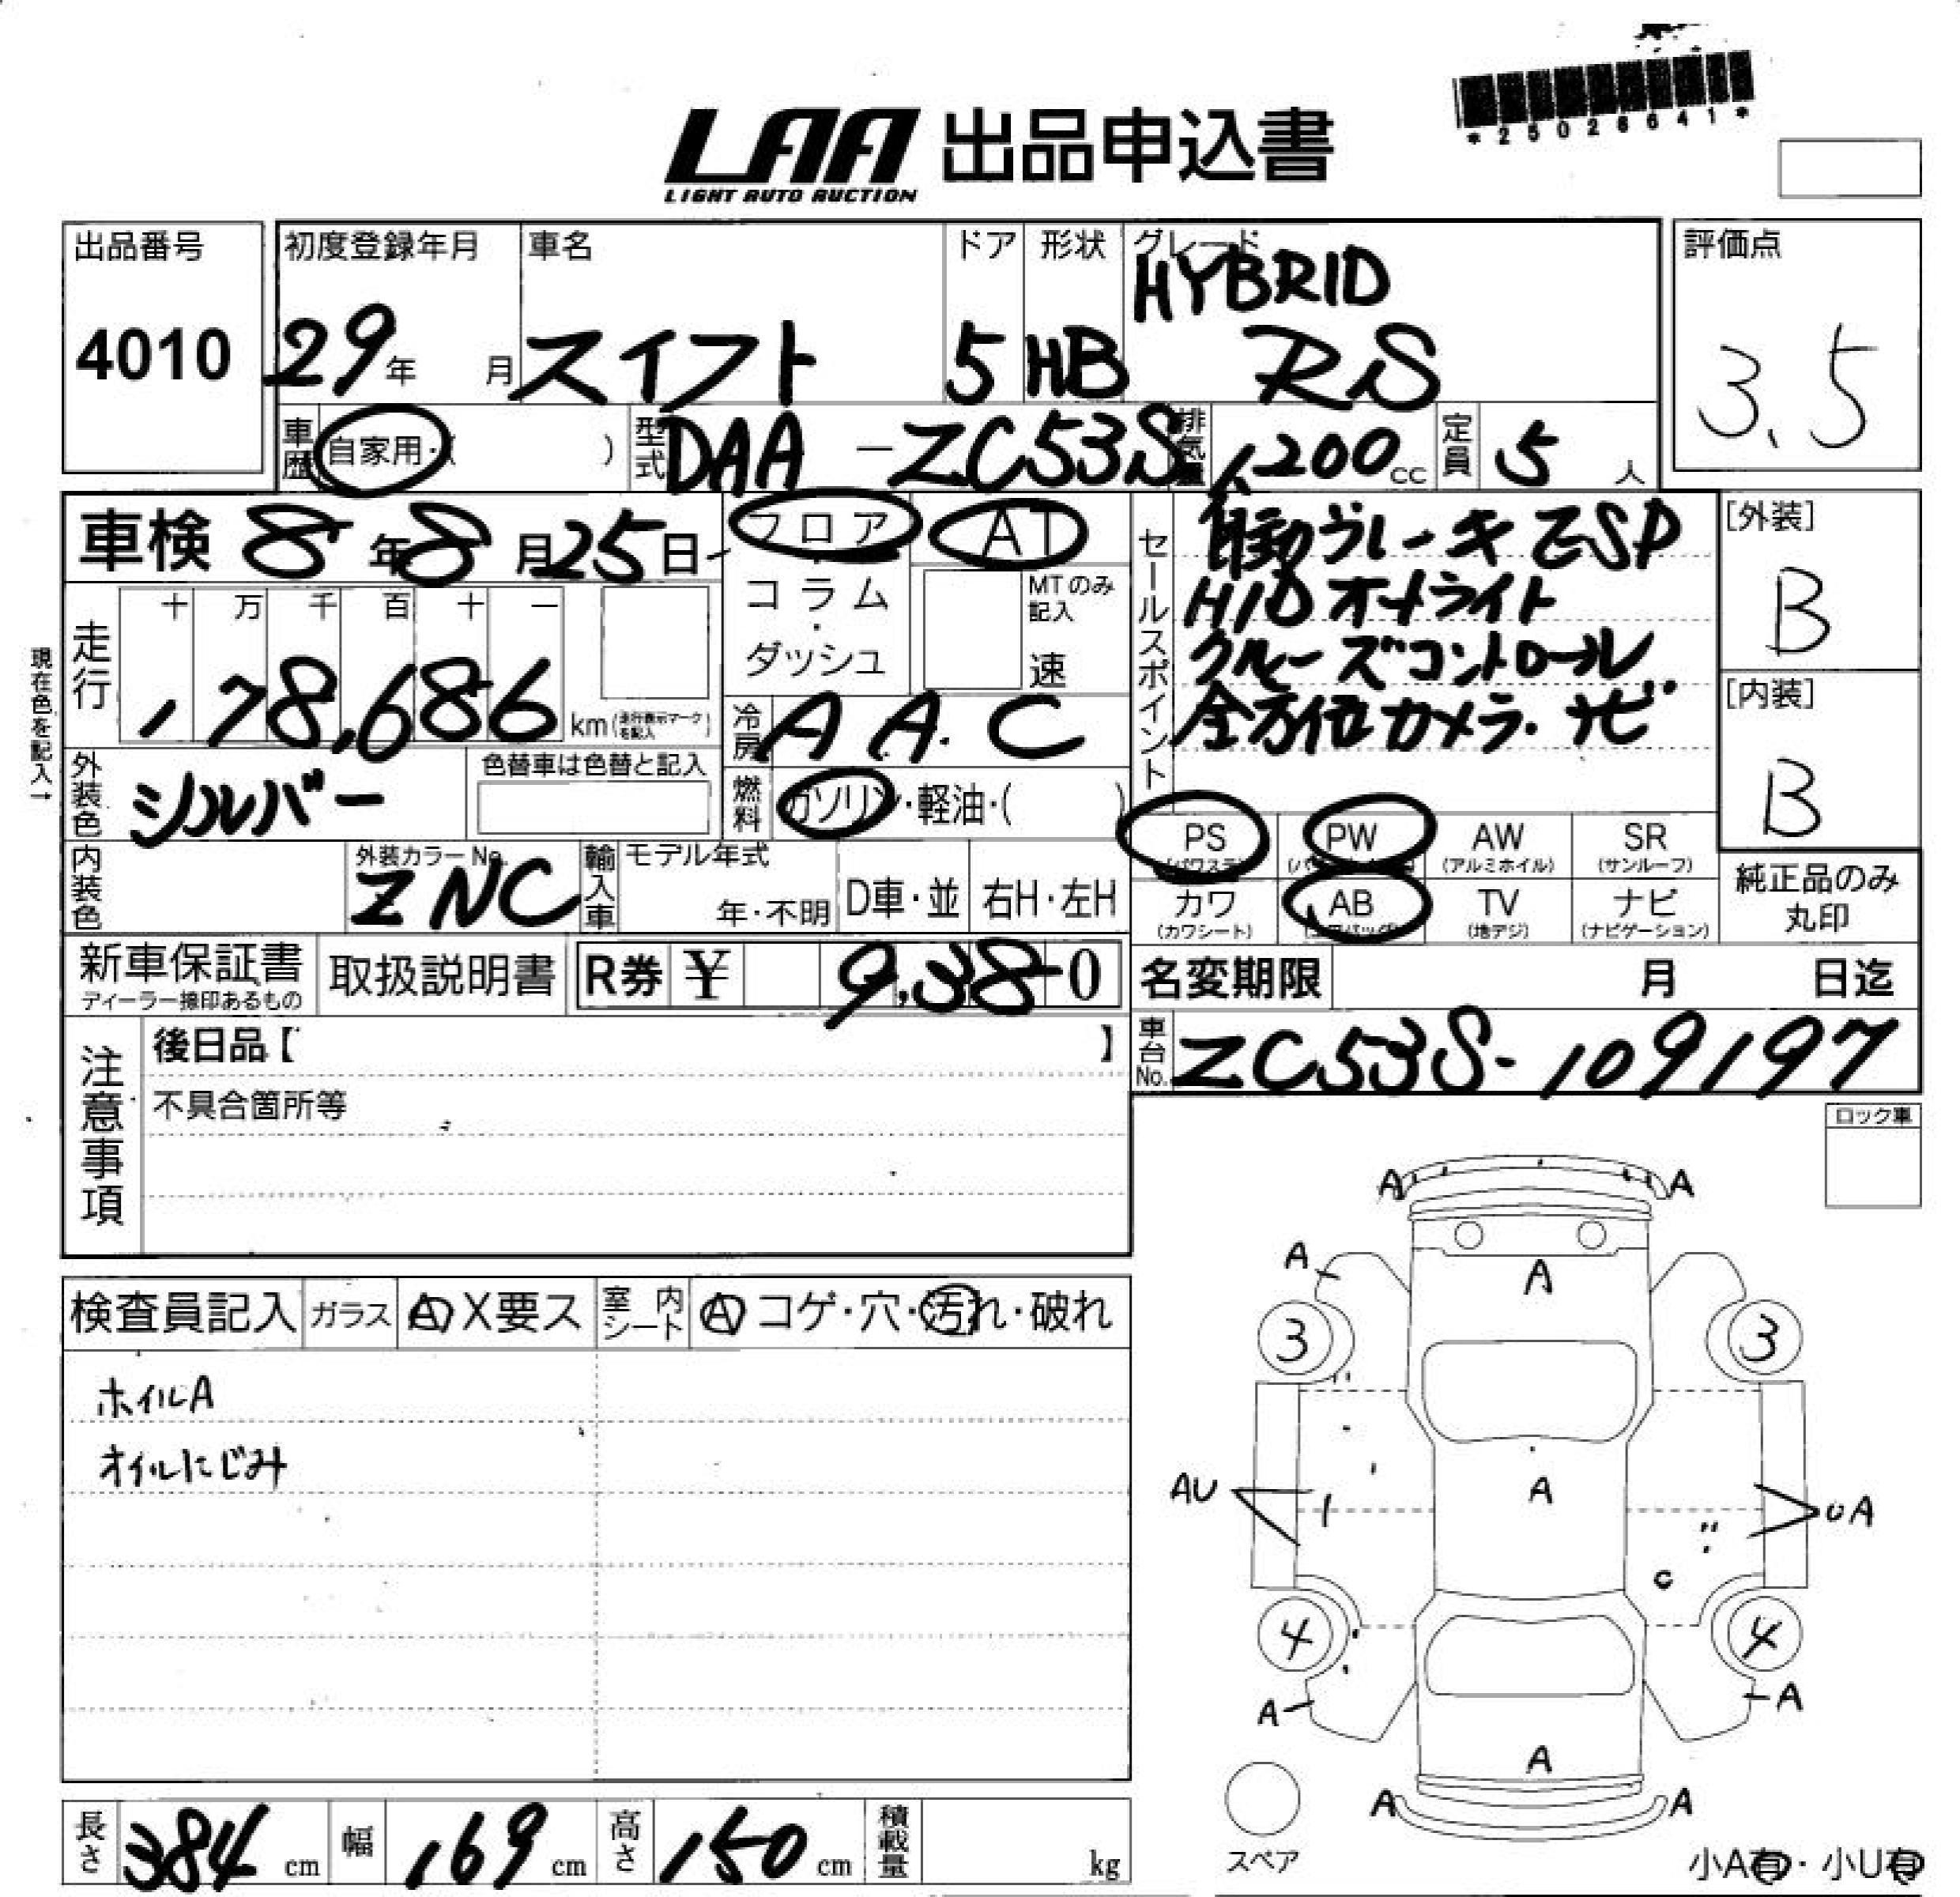 *25026641*
LAA 出品申込書
LIGHT AUTO AUCTION
出品番号
4010
初度登録年月
29年 月
車名
スイフト
ドア
5
形状
HB
グレード
HYBRID
RS
評価点
3.5
車歴 自家用・( )
型式 DAA-ZC53S
排気量 1,200cc
定員 5人
車検 8年8月25日
フロア
コラム
・
ダッシュ
AT
MTのみ
記入
速
セールスポイント
自動ブレーキ ESP
HID オートライト
クルーズコントロール
全方位カメラ・ナビ
[外装]
B
[内装]
B
現在色を記入→
走行
十 万 千 百 十 一
178,686 km(走行表示マークを記入)
冷房 AA.C
外装色 シルバー
色替車は色替と記入
燃料 ガソリン・軽油・( )
PS
(パワステ)
PW
AW
(アルミホイル)
SR
(サンルーフ)
カワ
(カワシート)
AB
(エアバッグ)
TV
(地デジ)
ナビ
(ナビゲーション)
純正品のみ
丸印
内装色
外装カラーNo.
ZNC
輸入車
モデル年式
年・不明
D車・並
右H・左H
新車保証書
ディーラー捺印あるもの
取扱説明書
R券 ¥ 9,380
名変期限 月 日迄
車台No. ZC53S-109197
注意事項
後日品【 】
不具合箇所等
ロック車
検査員記入
ガラス A X要ス
室内シート A コゲ・穴・汚れ・破れ
ホイルA
オイルにじみ
A A
A A
3 3
AU A UA
C
4 4
A A
A
A A
スペア
小A有・小U有
長さ 384 cm
幅 169 cm
高さ 150 cm
積載量 kg